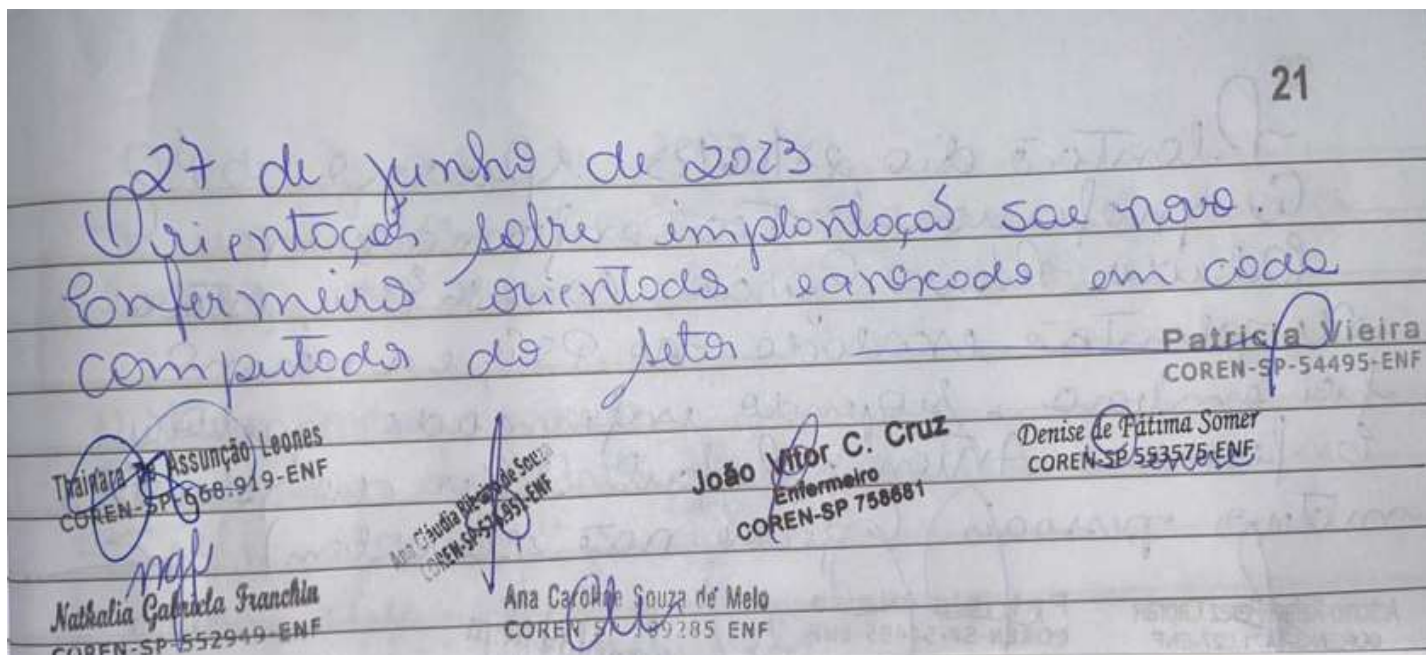 21
27 de junho de 2023
Orientação sobre implantação sae nova.
Enfermeiros orientados e anexado em cada
computador do setor
Patricia Vieira
COREN-SP-54495-ENF
Thainara Assunção Leones
COREN-SP-668.919-ENF
Ana Cláudia de Souza
João Vitor C. Cruz
Enfermeiro
COREN-SP 758681
Denise de Fátima Somer
COREN-SP 553575-ENF
Nathalia Gabriela Franchin
COREN-SP-552949-ENF
Ana Caroline Souza de Melo
COREN SP ENF